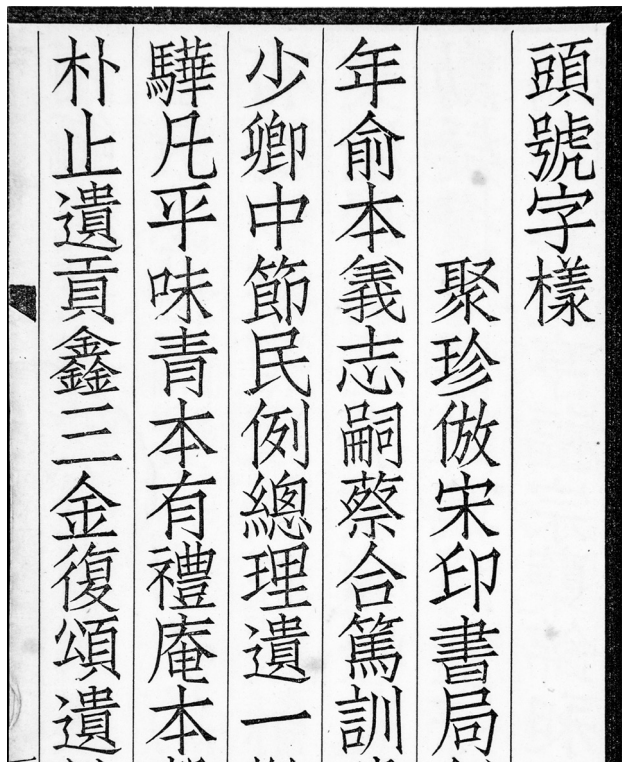 頭號字樣
聚珍倣宋印書局
年俞本義志嗣蔡合篤訓
少卿中節民例總理遺一
驊凡平味青本有禮庵本
朴止遺貢鑫三金復頌遺